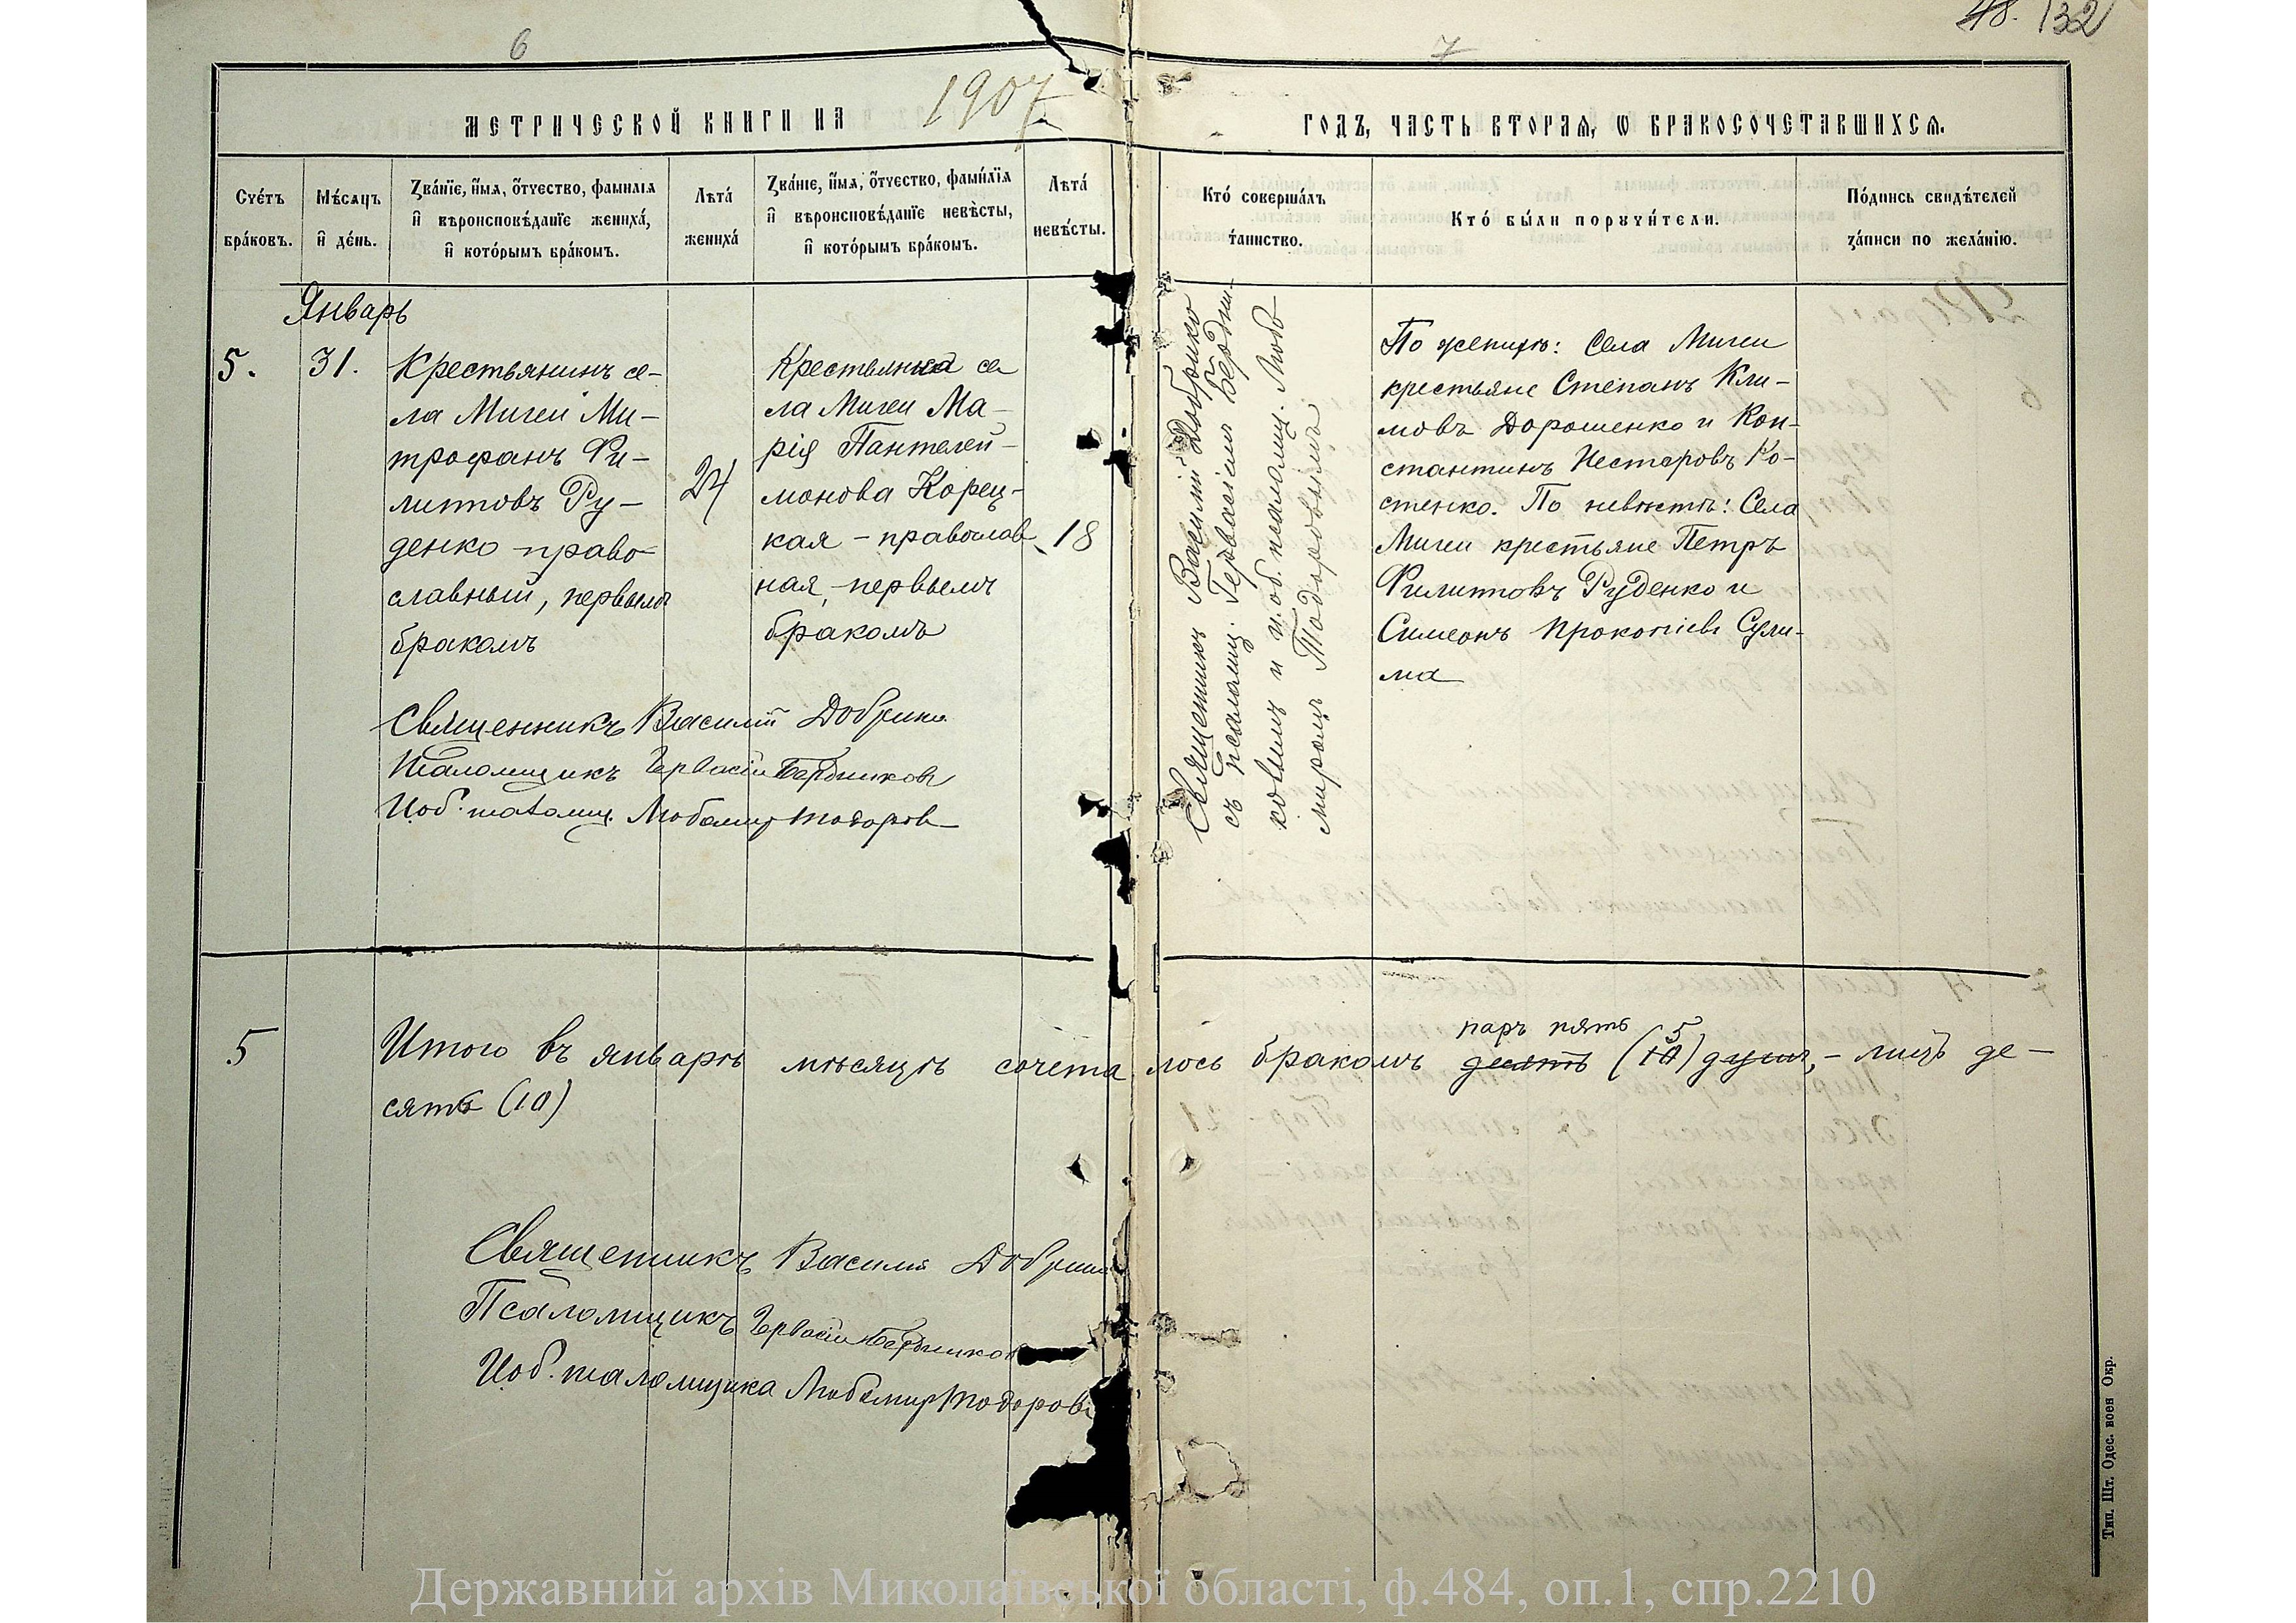 48. 132
6
7
МЕТРИЧЕСКОЙ КНИГИ НА 1907 ГОДЪ, ЧАСТЬ ВТОРАЯ, Ѡ БРАКОСОЧЕТАВШИХСЯ.
Счетъ браковъ.
Мѣсяцъ и день.
Званїе, имя, отчество, фамилїя
и вѣроисповѣданїе жениха,
и которымъ бракомъ.
Лѣта
жениха
Званїе, имя, отчество, фамилїя
и вѣроисповѣданїе невѣсты,
и которымъ бракомъ.
Лѣта
невѣсты.
Кто совершалъ
таинство.
Кто были поручители.
Подпись свидѣтелей
записи по желанїю.
Январь
5.
31.
Крестьянинъ се-
ла Мигеи Ми-
трофанъ Фи-
липповъ Ру-
денко – право-
славный, первымъ
бракомъ
24
Крестьянка се
ла Мигеи Ма-
рія Пантелей-
монова Корец-
кая – православ
ная, – первымъ
бракомъ
18
Священникъ Василій Добрико
съ псаломщ. Гервасіемъ Бердни-
ковымъ и и.об. псаломщ. Любо
миромъ Тодоровымъ.
По женихѣ: Села Мигеи
крестьяне Степанъ Кли-
мовъ Дорошенко и Кон-
стантинъ Нестеровъ Ко-
стенко. По невѣстѣ: Села
Мигеи крестьяне Петръ
Филипповъ Руденко и
Симеонъ Прокопіевъ Сули-
ма
Священникъ Василій
Псаломщикъ Гервасій Бердниковъ
И.об. псаломщ. Любомир Тодоров
5
Итого въ январѣ мѣсяцѣ сочета лось бракомъ десять (10) душъ, – лицъ де-
паръ пять
5
сять (10)
Священникъ Василій
Псаломщикъ Гервасій Бердников
И.об. псаломщика Любомир Тодоров
Тип. Шт. Одес. воен Окр.
Державний архів Миколаївської області, ф.484, оп.1, спр.2210